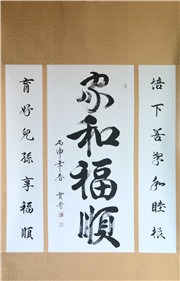 培下善衆和睦根
家和福順
丙申年春
育好兒孫享福順